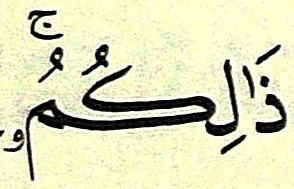 ذَٰلِكُمُۥۚ